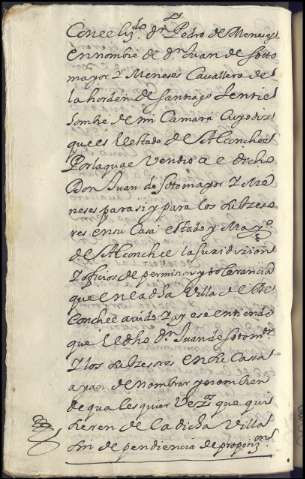 Con el lizdo Dn Pedro de Meneses
en nombre de dn Juan de Soto
mayor y Meneses Cavallero de
la horden de Santiago Jentil
hombre de mi Camara Cuyo dize
que es el estado de Alconchel
Por la qual vendio a el dicho
Don Juan de Sotomayor y Me
neses para si y para los subzeso
res en su Casa estado y Mayo
de Alconchel la Jurisdizion
y oficios de permision y tolerancia
que en la dha Villa de Al
Conchel avido y ay ese entiendo
que el dho dn Juan de Sotomor
y los subzesores en su Casa
ayan de nombrar y
de qualesquier que qui
sieren de la dicha Villa
sin dependiencia de propinnes